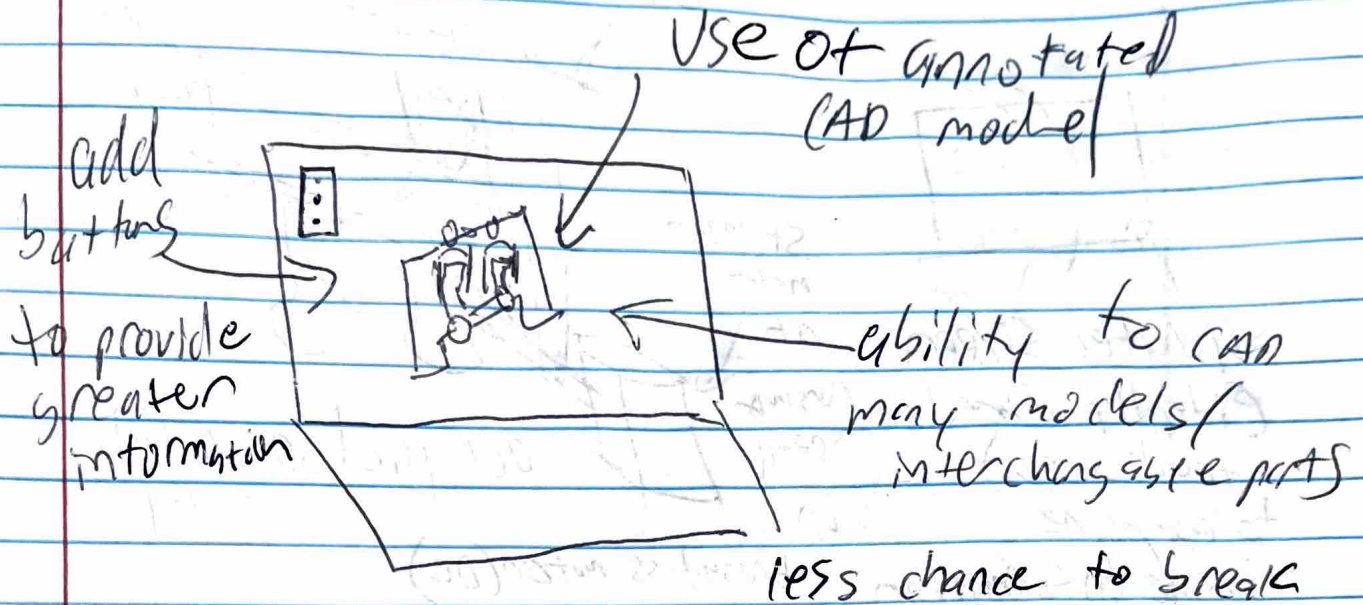 Use of annotated
CAD model
add
buttons
to provide
greater
information
ability to CAD
many models/
interchangable parts
less chance to break